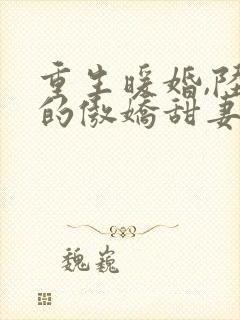 重生暖婚,陆
的傲娇甜妻
魏巍